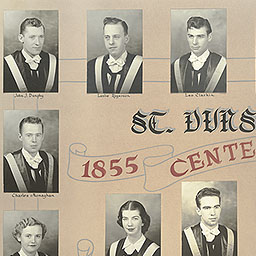 John J. Dunphy
Leslie Rogerson
Leo Clarkin
ST. DUNS
1855 CENTE
Charles Monaghan